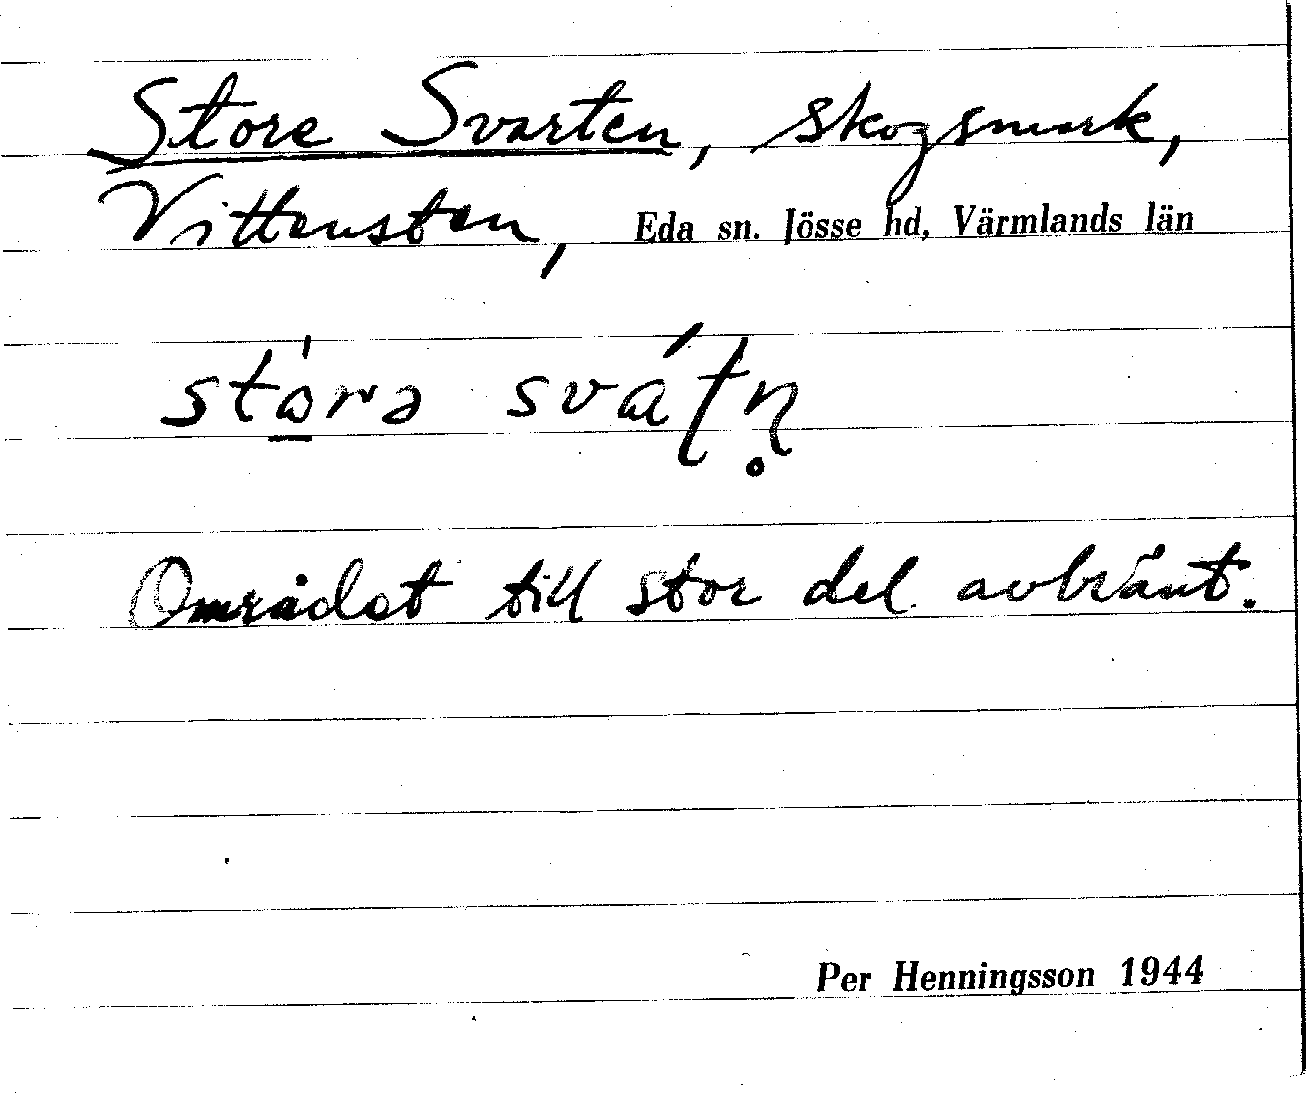 Store Svarten, skogsmark,
Vittensten, Eda sn. Jösse hd, Värmlands län
stòrə svátn̥
Området till stor del avbränt.
Per Henningsson 1944